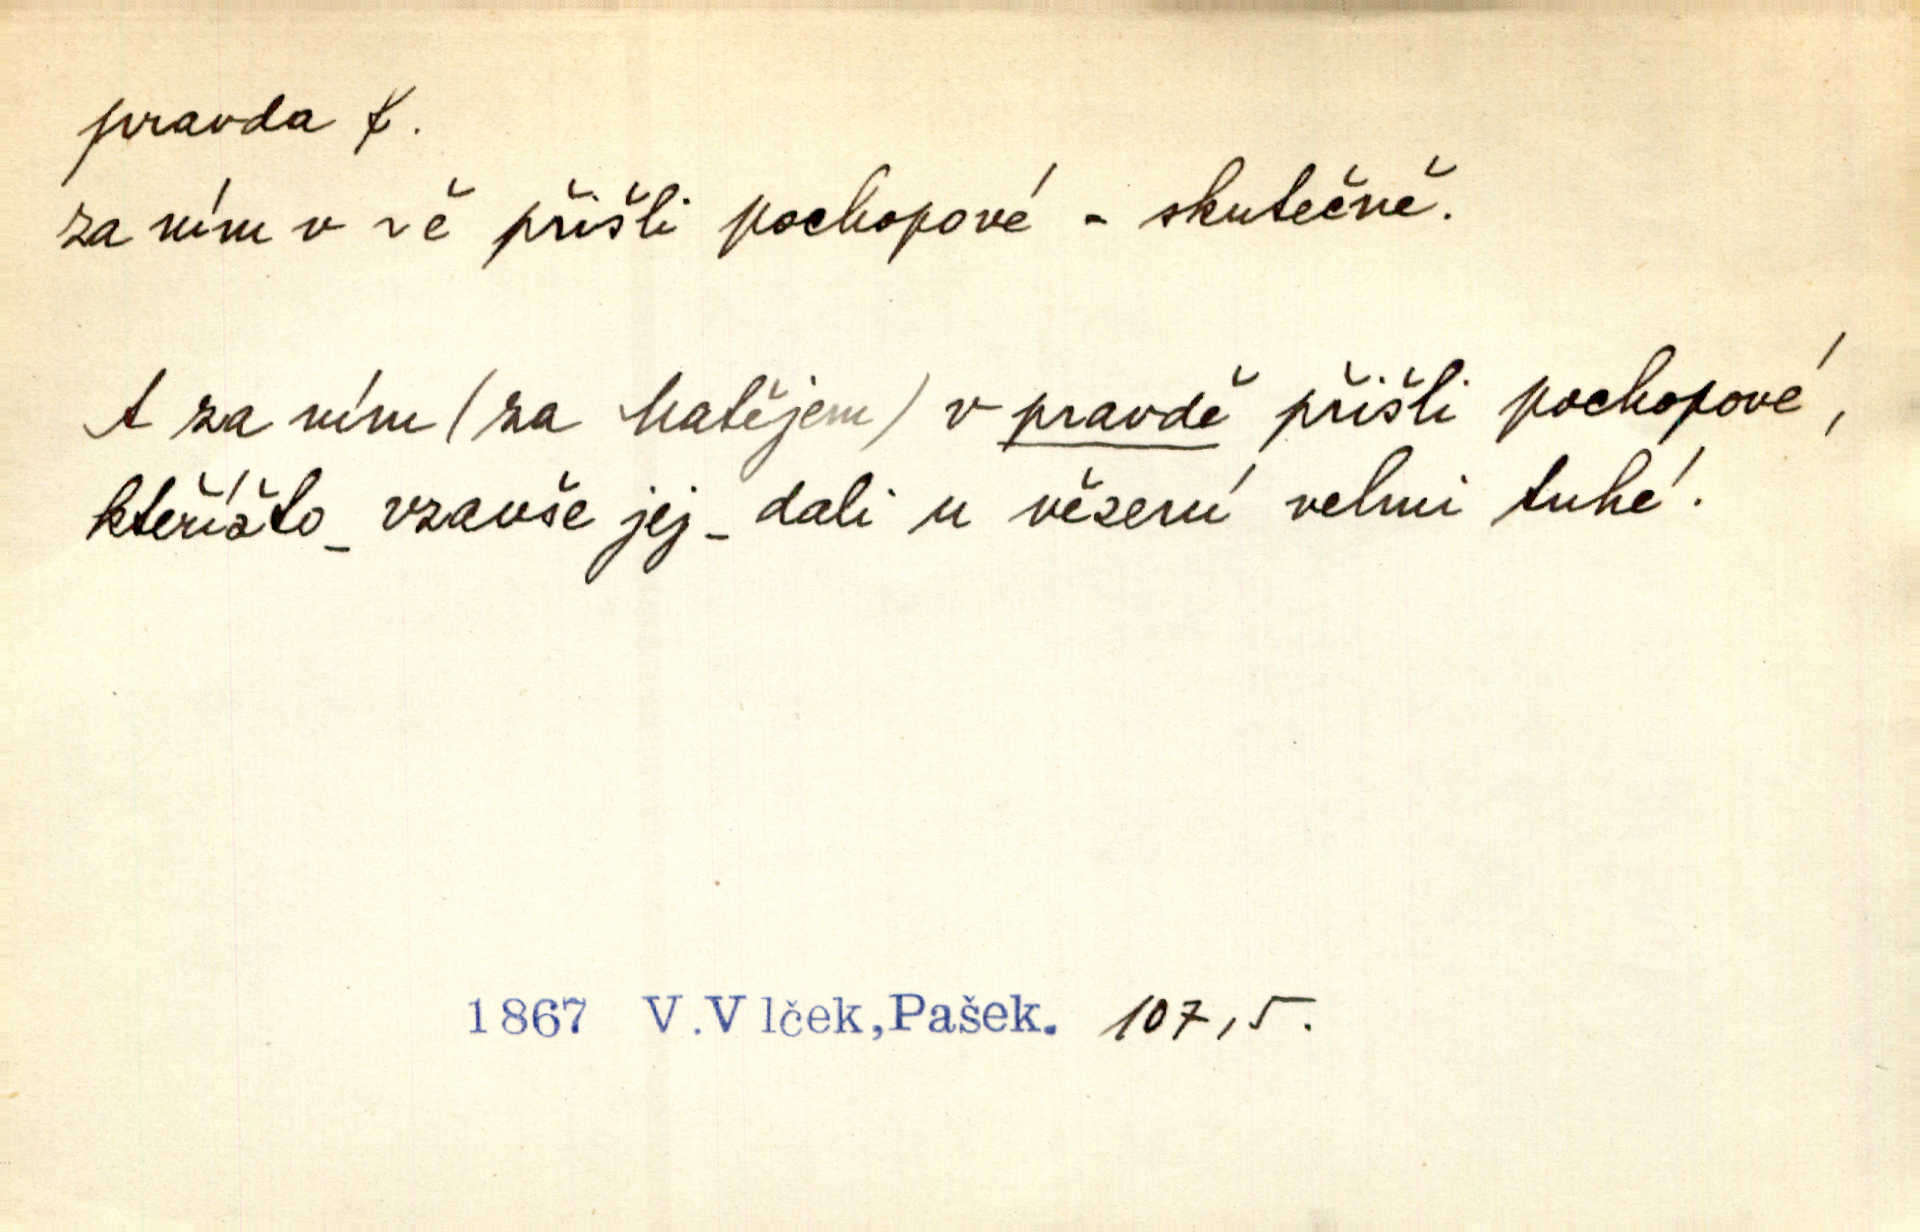 pravda f.
za ním v ~ě přišli pochopové - skutečně.
A za ním (za Matějem) v pravdě přišli pochopové,
kteřížto - vzavše jej - dali u vězení velmi tuhé.
1867 V. Vlček, Pašek. 107,5.